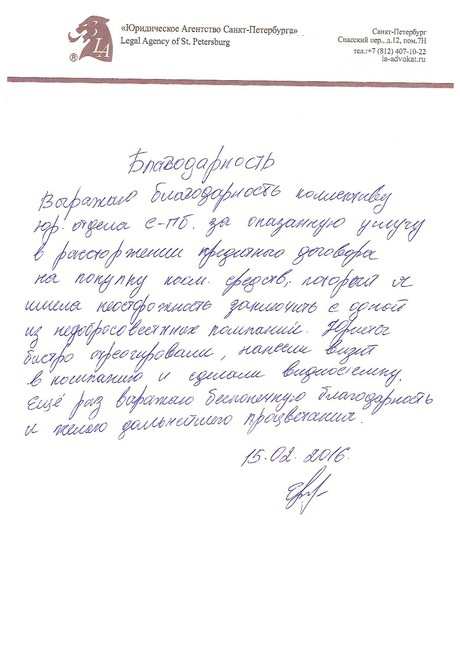 «Юридическое Агентство Санкт-Петербурга»
Legal Agency of St. Petersburg
LA
®
Санкт-Петербург
Спасский пер., д.12, пом.7Н
тел.:+7 (812) 407-10-22
la-advokat.ru
Благодарность
Выражаю благодарность коллективу
юр. отдела С-Пб. за оказанную услугу
в расторжении кредитного договора
на покупку косм. средств, который я
имела неосторожность заключить с одной
из недобросовестных компаний. Юристы
быстро отреагировали, нанесли визит
в компанию и сделали видиосъемку.
Ещё раз выражаю бесконечную благодарность
и желаю дальнейшего процветания.
15.02.2016.